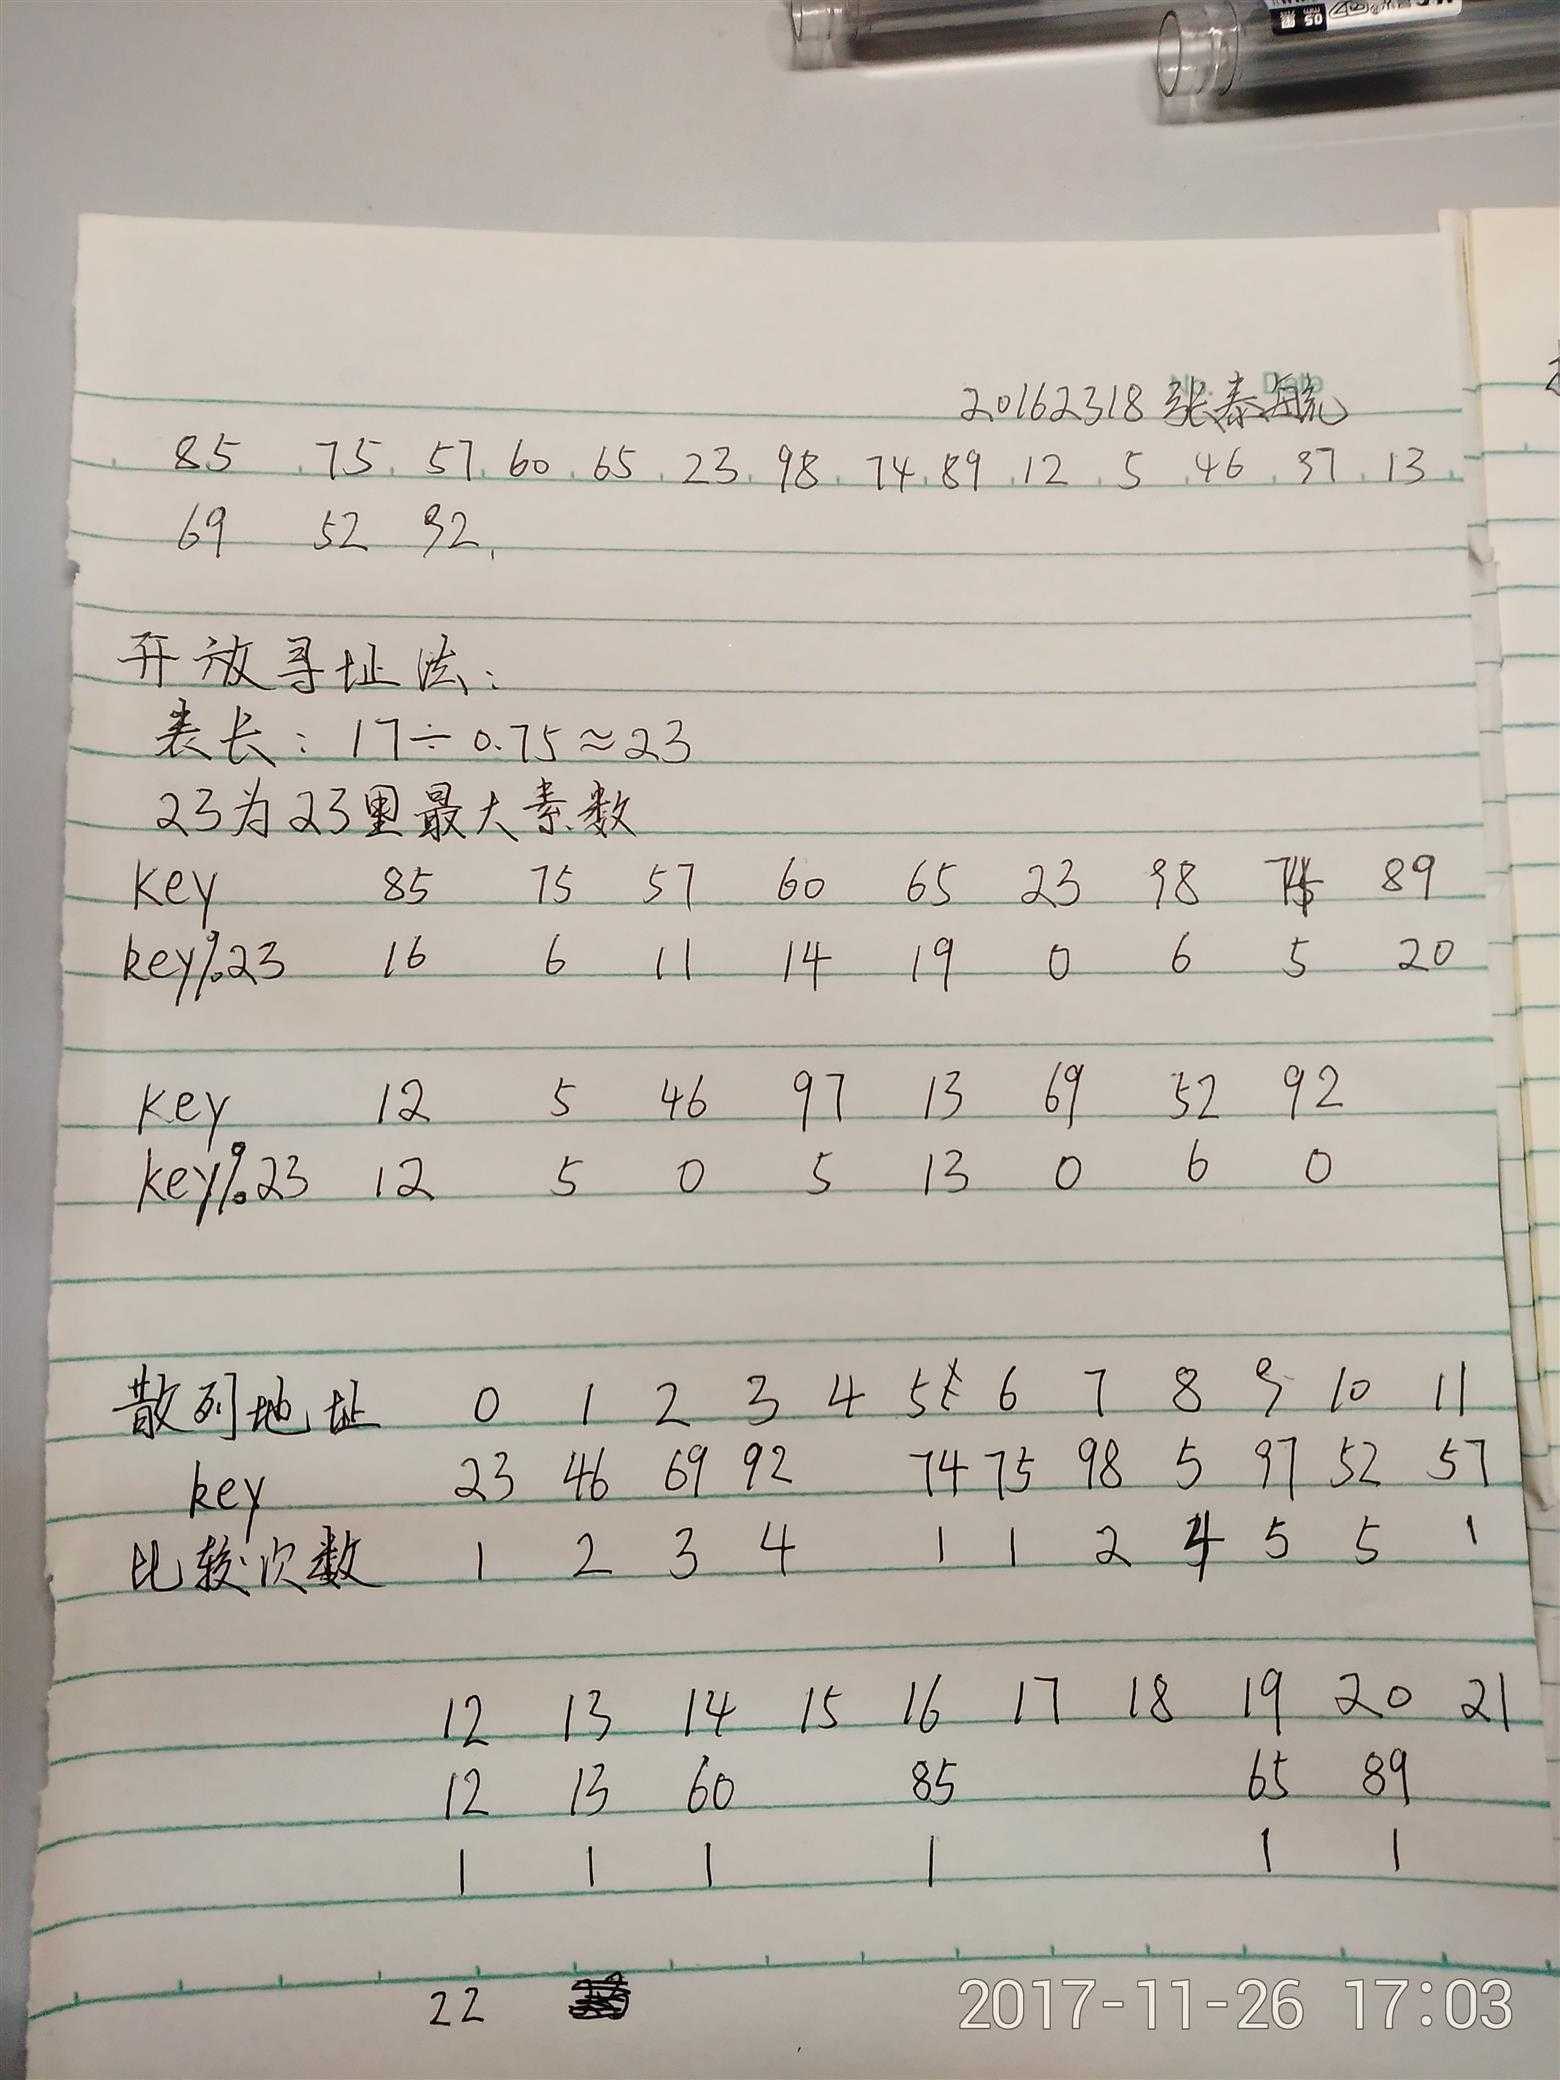 20162318 张泰毓
85 75 57 60 65 23 98 74 89 12 5 46 97 13
69 52 92
开放寻址法:
表长: 17÷0.75≈23
23为23里最大素数
key 85 75 57 60 65 23 98 74 89
key%23 16 6 11 14 19 0 6 5 20
key 12 5 46 97 13 69 52 92
key%23 12 5 0 5 13 0 6 0
散列地址 0 1 2 3 4 5 6 7 8 9 10 11
key 23 46 69 92 74 75 98 5 97 52 57
比较次数 1 2 3 4 1 1 2 4 5 5 1
12 13 14 15 16 17 18 19 20 21
12 13 60 85 65 89
1 1 1 1 1 1
22
2017-11-26 17:03